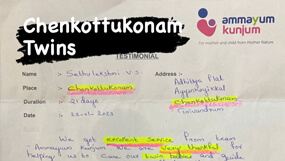 Chenkottukonam,
Twins
ammayum
kunjum
For mother and child from Mother Nature
TESTIMONIAL
Name :- Sethulekshmi V.S. Address :-
Place :- Chenkottukonam
Chenkottukonam
Duration :- 21 days Trivandrum
Date :- 22-01-2023
We got excellent service from team
Ammayum Kunjum. We are very thankful for
helping us to care our twin babies and guide